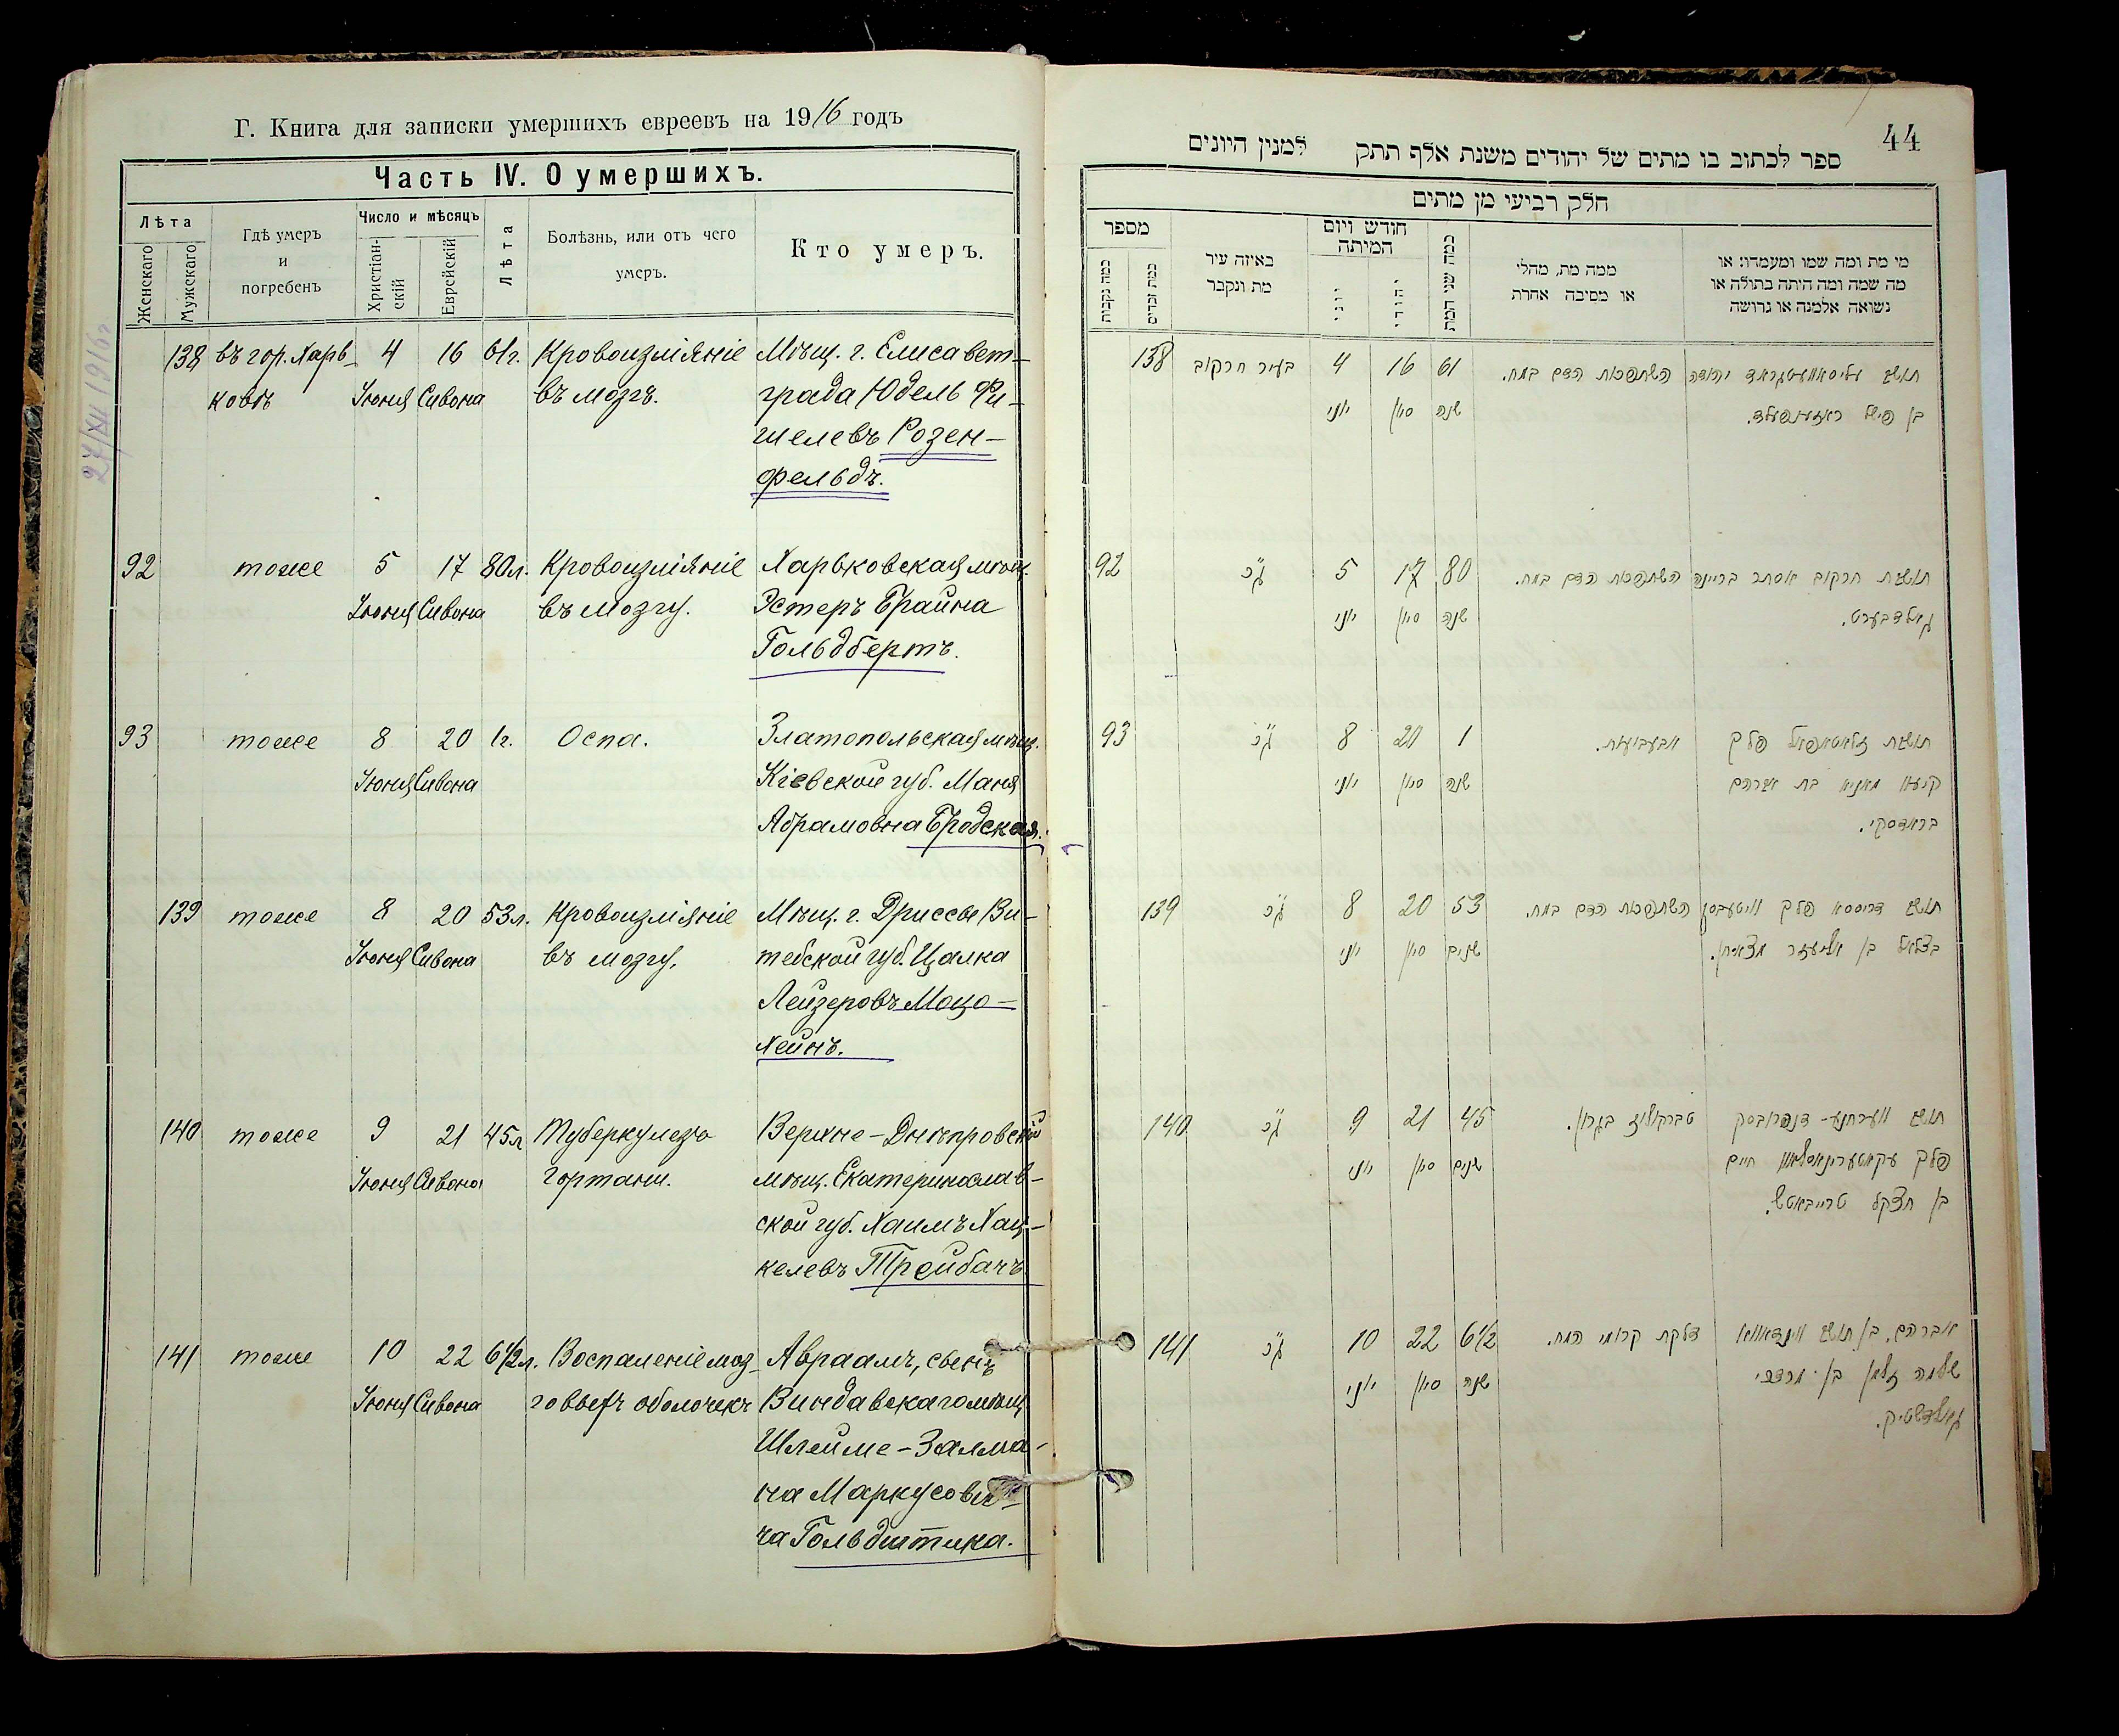 Г. Книга для записки умершихъ евреевъ на 1916 годъ
Часть IV. О умершихъ.
Лѣта
Женскаго
Мужскаго
Гдѣ умеръ
и
погребенъ
Число и мѣсяцъ
Христіан-
скій
Еврейскій
Лѣта
Болѣзнь, или отъ чего
умеръ.
Кто умеръ.
27/XII 1916 г.
138 въ гор. Харь- 4 16 61 г. Кровоизліяніе Мѣщ. г. Елисавет-
ковѣ Іюня Сивона въ мозгъ. града Юдель Фи-
шелевъ Розен-
фельдъ.
92 тоже 5 17 80 л. Кровоизліяніе Харьковская мѣщ.
Іюня Сивона въ мозгу. Эстеръ Брайна
Гольдбертъ.
93 тоже 8 20 1 г. Оспа. Златопольская мѣщ.
Іюня Сивона Кіевской губ. Маня
Абрамовна Бродская.
139 тоже 8 20 53 л. Кровоизліяніе Мѣщ. г. Дриссы Ви-
Іюня Сивона въ мозгу. тебской губ. Цалка
Лейзеровъ Моцо-
хейнъ.
140 тоже 9 21 45 л. Туберкулезъ Верхне-Днѣпровскій
Іюня Сивона гортани. мѣщ. Екатеринослав-
ской губ. Хаимъ Хац-
келевъ Трейбачъ.
141 тоже 10 22 6 1/2 л. Воспаленіе моз- Авраамъ, сынъ
Іюня Сивона говыхъ оболочекъ Виндавскаго мѣщ.
Шлейме-Залма-
на Маркусови-
ча Гольдштика.
44
ספר לכתוב בו מתים של יהודים משנת אלף תתק למנין היונים
חלק רביעי מן מתים
מספר
כמה נקבות
כמה זכרים
באיזה עיר
מת ונקבר
חודש ויום
המיתה
יוני
יהודי
כמה שני המת
ממה מת, מחלי
או מסיבה אחרת
מי מת ומה שמו ומעמדו: או
מה שמה ומה היתה בתולה או
נשואה אלמנה או גרושה
138 בעיר חרקוב 4 16 61 השתפכות הדם במח. תושב עליסאוועטגראד יהודה
יוני סיון שנה בן פישל ראזענפעלד.
92 ג"כ 5 17 80 השתפכות הדם במח. תושבת חרקוב אסתר בריינה
יוני סיון שנה גאלדבערט.
93 ג"כ 8 20 1 אבעבועות. תושבת זלאטאפאל פלך
יוני סיון שנה קיעוו מאניא בת אברהם
בראדסקי.
139 ג"כ 8 20 53 השתפכות הדם במח. תושב דריססא פלך וויטעבסק
יוני סיון שנים בצלאל בן אליעזר
140 ג"כ 9 21 45 טברקולוז בגרון. תושב ווערחנע-דנפרובסק
יוני סיון שנים פלך עקאטערינאסלאוו חיים
בן חצקל טרייבאטש.
141 ג"כ 10 22 6 1/2 דלקת קרומי המח. אברהם, בן תושב ווינדאווא
יוני סיון שנה שלמה זלמן בן מרדכי
גאלדשטיק.